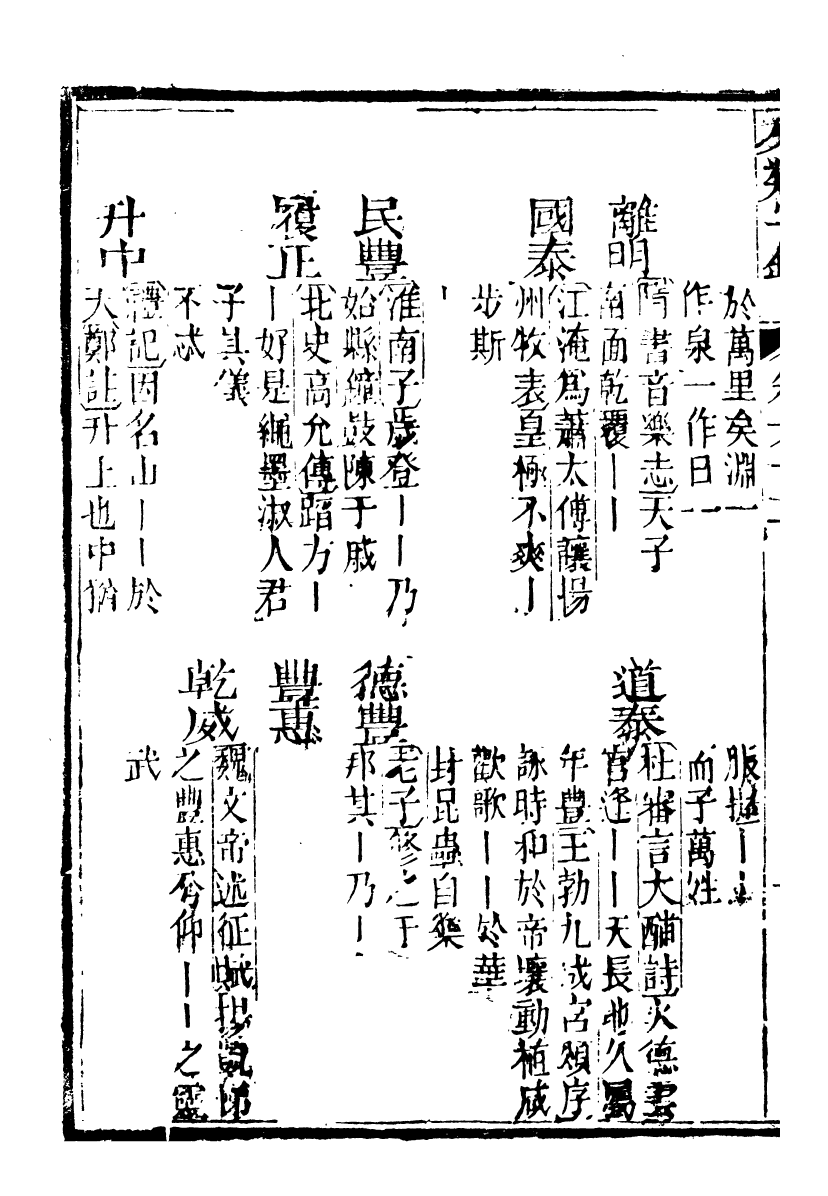 於萬里矣淵一
作泉一作日一
離明
隋書音樂志天子
南面乾覆｜｜
國泰
江淹爲蕭太傅讓揚
州牧表皇極不爽｜
步斯
｜
民豐
淮南子歲登｜｜乃
始縣鐘鼓陳干戚
履正
北史高允傳蹈方｜
｜好是繩墨淑人君
子其儀
不忒
升中
禮記因名山｜｜於
天鄭註升上也中猶
服㨗｜｜
而子萬姓
道泰
杜審言大酺詩火德書
官逢｜｜天長地久屬
年豐王勃九成宮頌序
詠時和於帝壤動植咸
歡歌｜｜於華
封昆蟲自樂
德豐
老子修之于
邦其｜乃｜
豐惠
乾威
魏文帝述征賦
之豐惠兮仰｜｜之靈
武